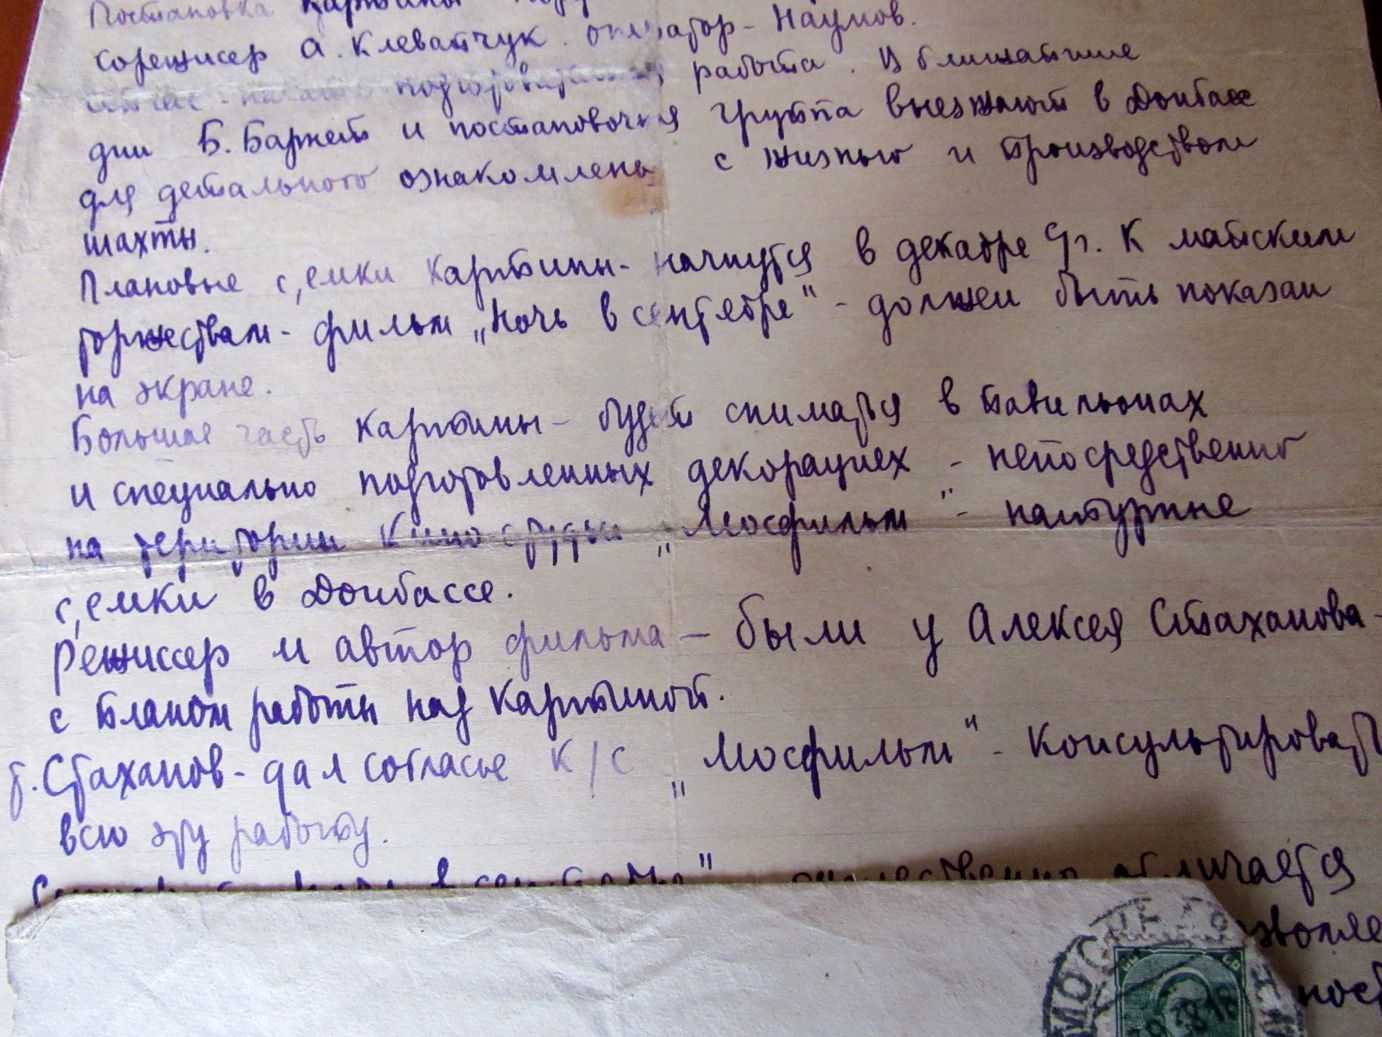 Постановка картины
сорежисер А. Клеватчук. оператор - Наумов.
работа. В ближайшие
дни Б. Барнет и постановочная группа выезжают в Донбасс
для детального ознакомлены с жизнью и производством
шахты.
Плановые с,емки картины - начнутся в декабре 9г. К майским
торжествам - фильм „Ночь в сентябре" - должен быть показан
на экране.
Большая часть картины - будет сниматься в павильонах
и специально подготовленных декорациех - непосредственно
на територии Кино студии „Мосфильм" - натурные
с,емки в Донбассе.
Режиссер и автор фильма - были у Алексея Стаханова -
с планом работы над картиной.
т. Стаханов - дал согласье к/с „Мосфильм" - консультировать
всю эту работу.
в сентябре" существенно отличается
МОСКВА